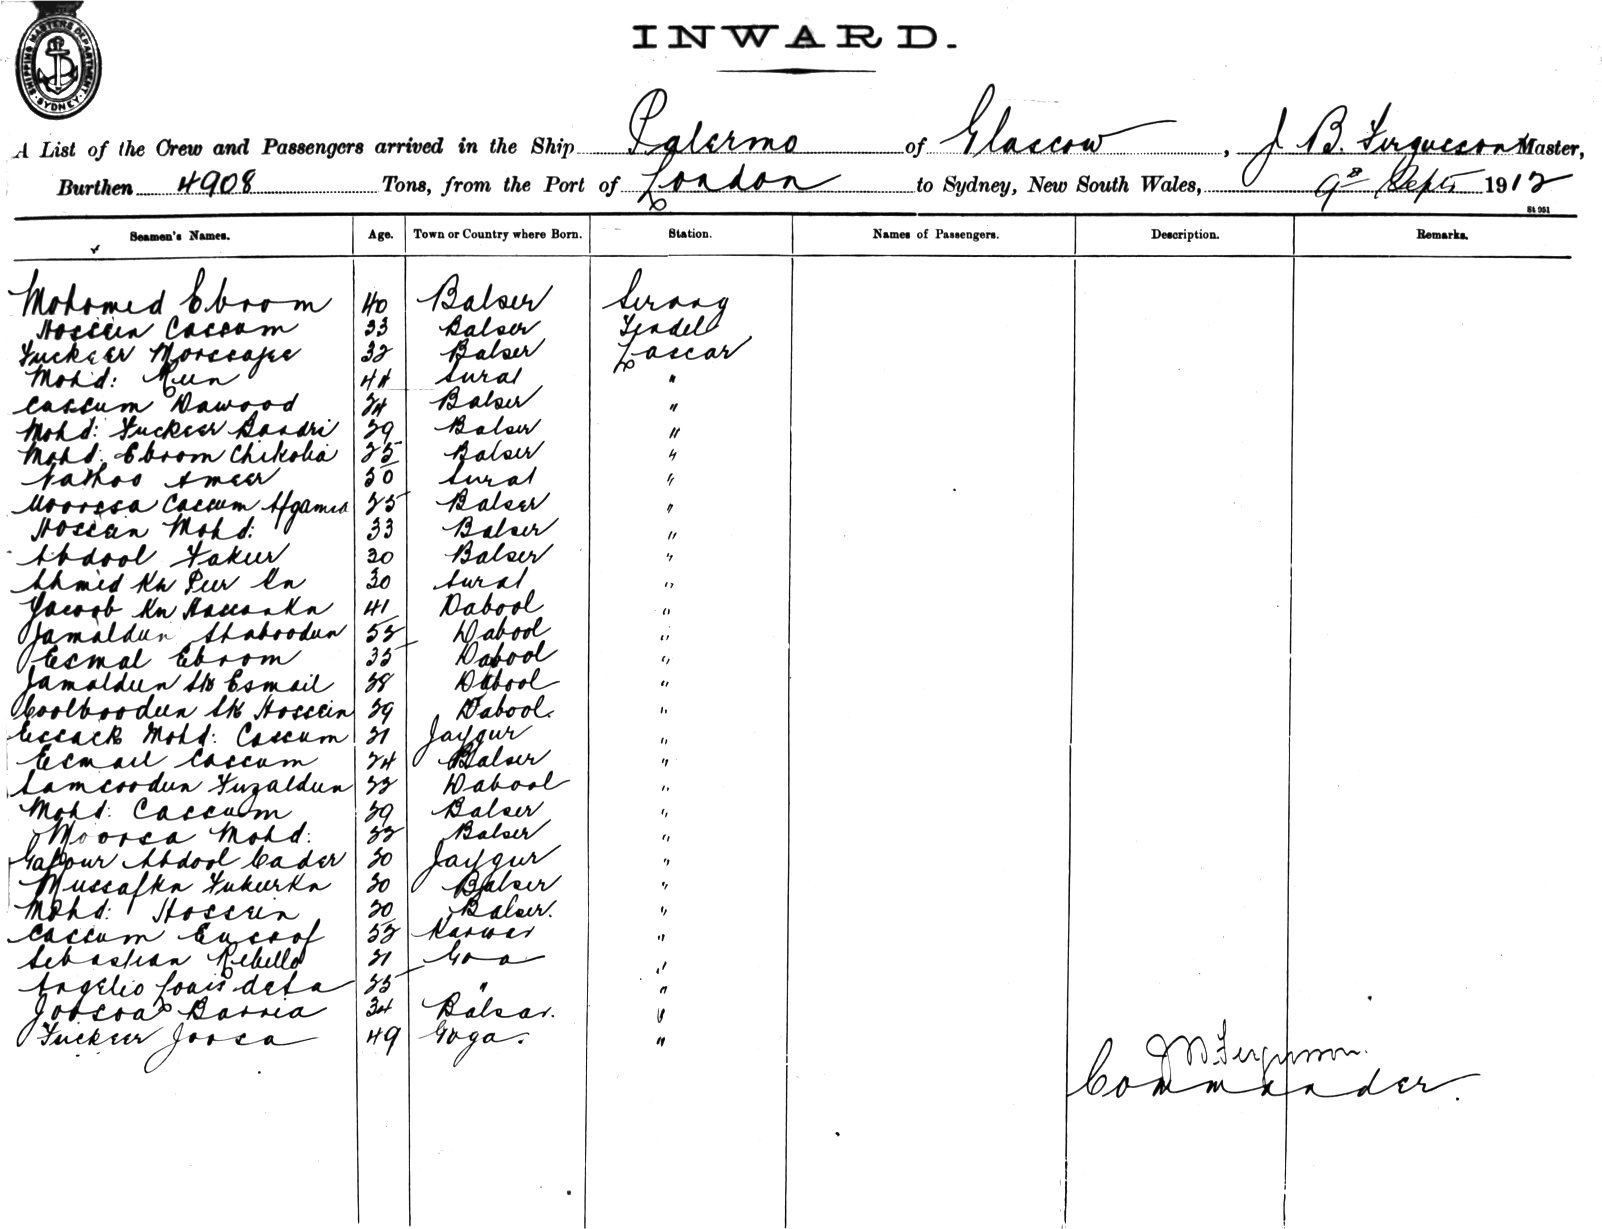 SHIPPING MASTERS DEPARTMENT SYDNEY
INWARD.
A List of the Crew and Passengers arrived in the Ship Palermo of Glascow, J B. Fergueson Master,
Burthen 4908 Tons, from the Port of London to Sydney, New South Wales, 9th Sept 1912
St 951
Seamen's Names. Age. Town or Country where Born. Station. Names of Passengers. Description. Remarks.
Mohomed Ebrom 40 Balser Serang
Hossein Cassum 33 Balser Tendel
Fuckeer Moossajee 32 Balser Lascar
Mohd: 44 Surat "
Cassum Dawood 24 Balser "
Mohd: Fuckeer Bandri 29 Balser "
Mohd: Ebrom Chikolia 25 Balser "
Nathoo Ameer 50 Surat "
Moossa Cassum 25 Balser "
Hossein Mohd: 33 Balser "
Abdool Fakur 30 Balser "
Ahmed Kn Peer Kn 30 Surat "
Yacoob Kn Hassan Kn 41 Dabool "
Jamaldun Shaboodun 52 Dabool "
Esmal Ebrom 35 Dabool "
Jamaldun Sk Esmail 38 Dabool "
Coolboodeen Sk Hossein 39 Dabool. "
Essack Mohd: Cassum 21 Jaygur "
Esmail Cassum 24 Balser "
Samsoodun Fuzaldun 22 Dabool "
Mohd: Cassum 29 Balser "
Moossa Mohd: 22 Balser "
Gafour Abdool Cader 30 Jaygur "
Mussafkn Fukurkn 30 Balser "
Mohd: Hossein 20 Balser. "
Cassum Eusoof 52 Karwar "
Sebastian Rebello 21 Goa "
Angelio Louis deSa 25 " "
Joosoa Barria 34 Balsar. "
Fuckeer Joosa 49 Goga. "
J B. Ferguson.
Commander.